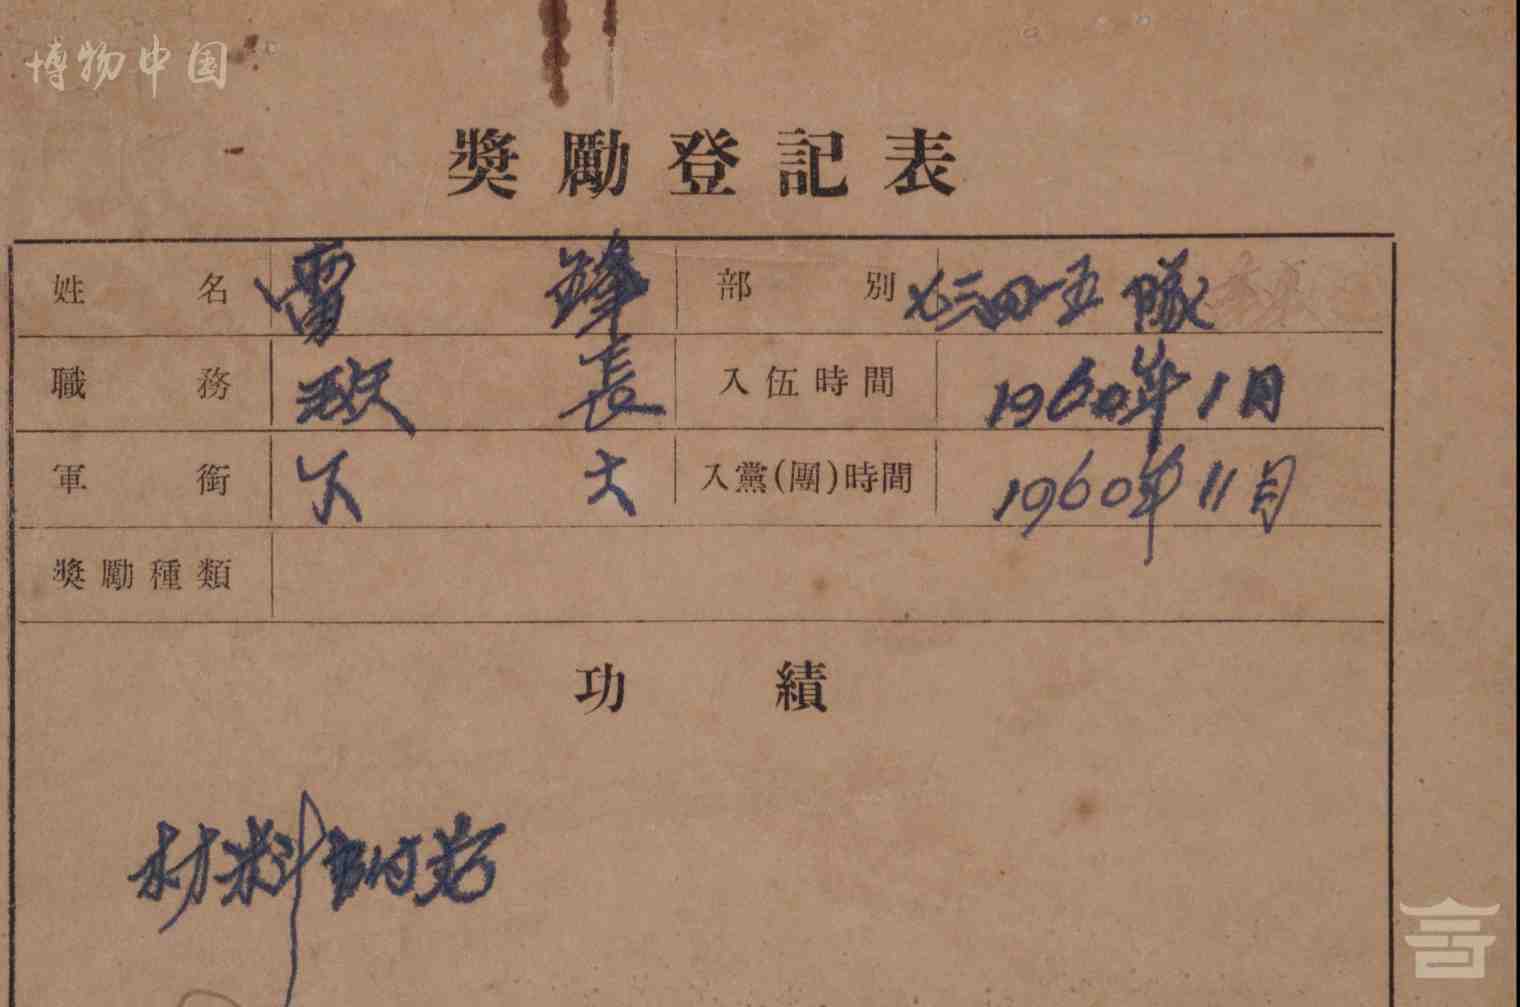 博物中国
獎勵登記表
姓名 雷鋒 部別 七三四五隊
職務 班長 入伍時間 1960年1月
軍銜 下士 入黨(團)時間 1960年11月
獎勵種類
功績
材料附后